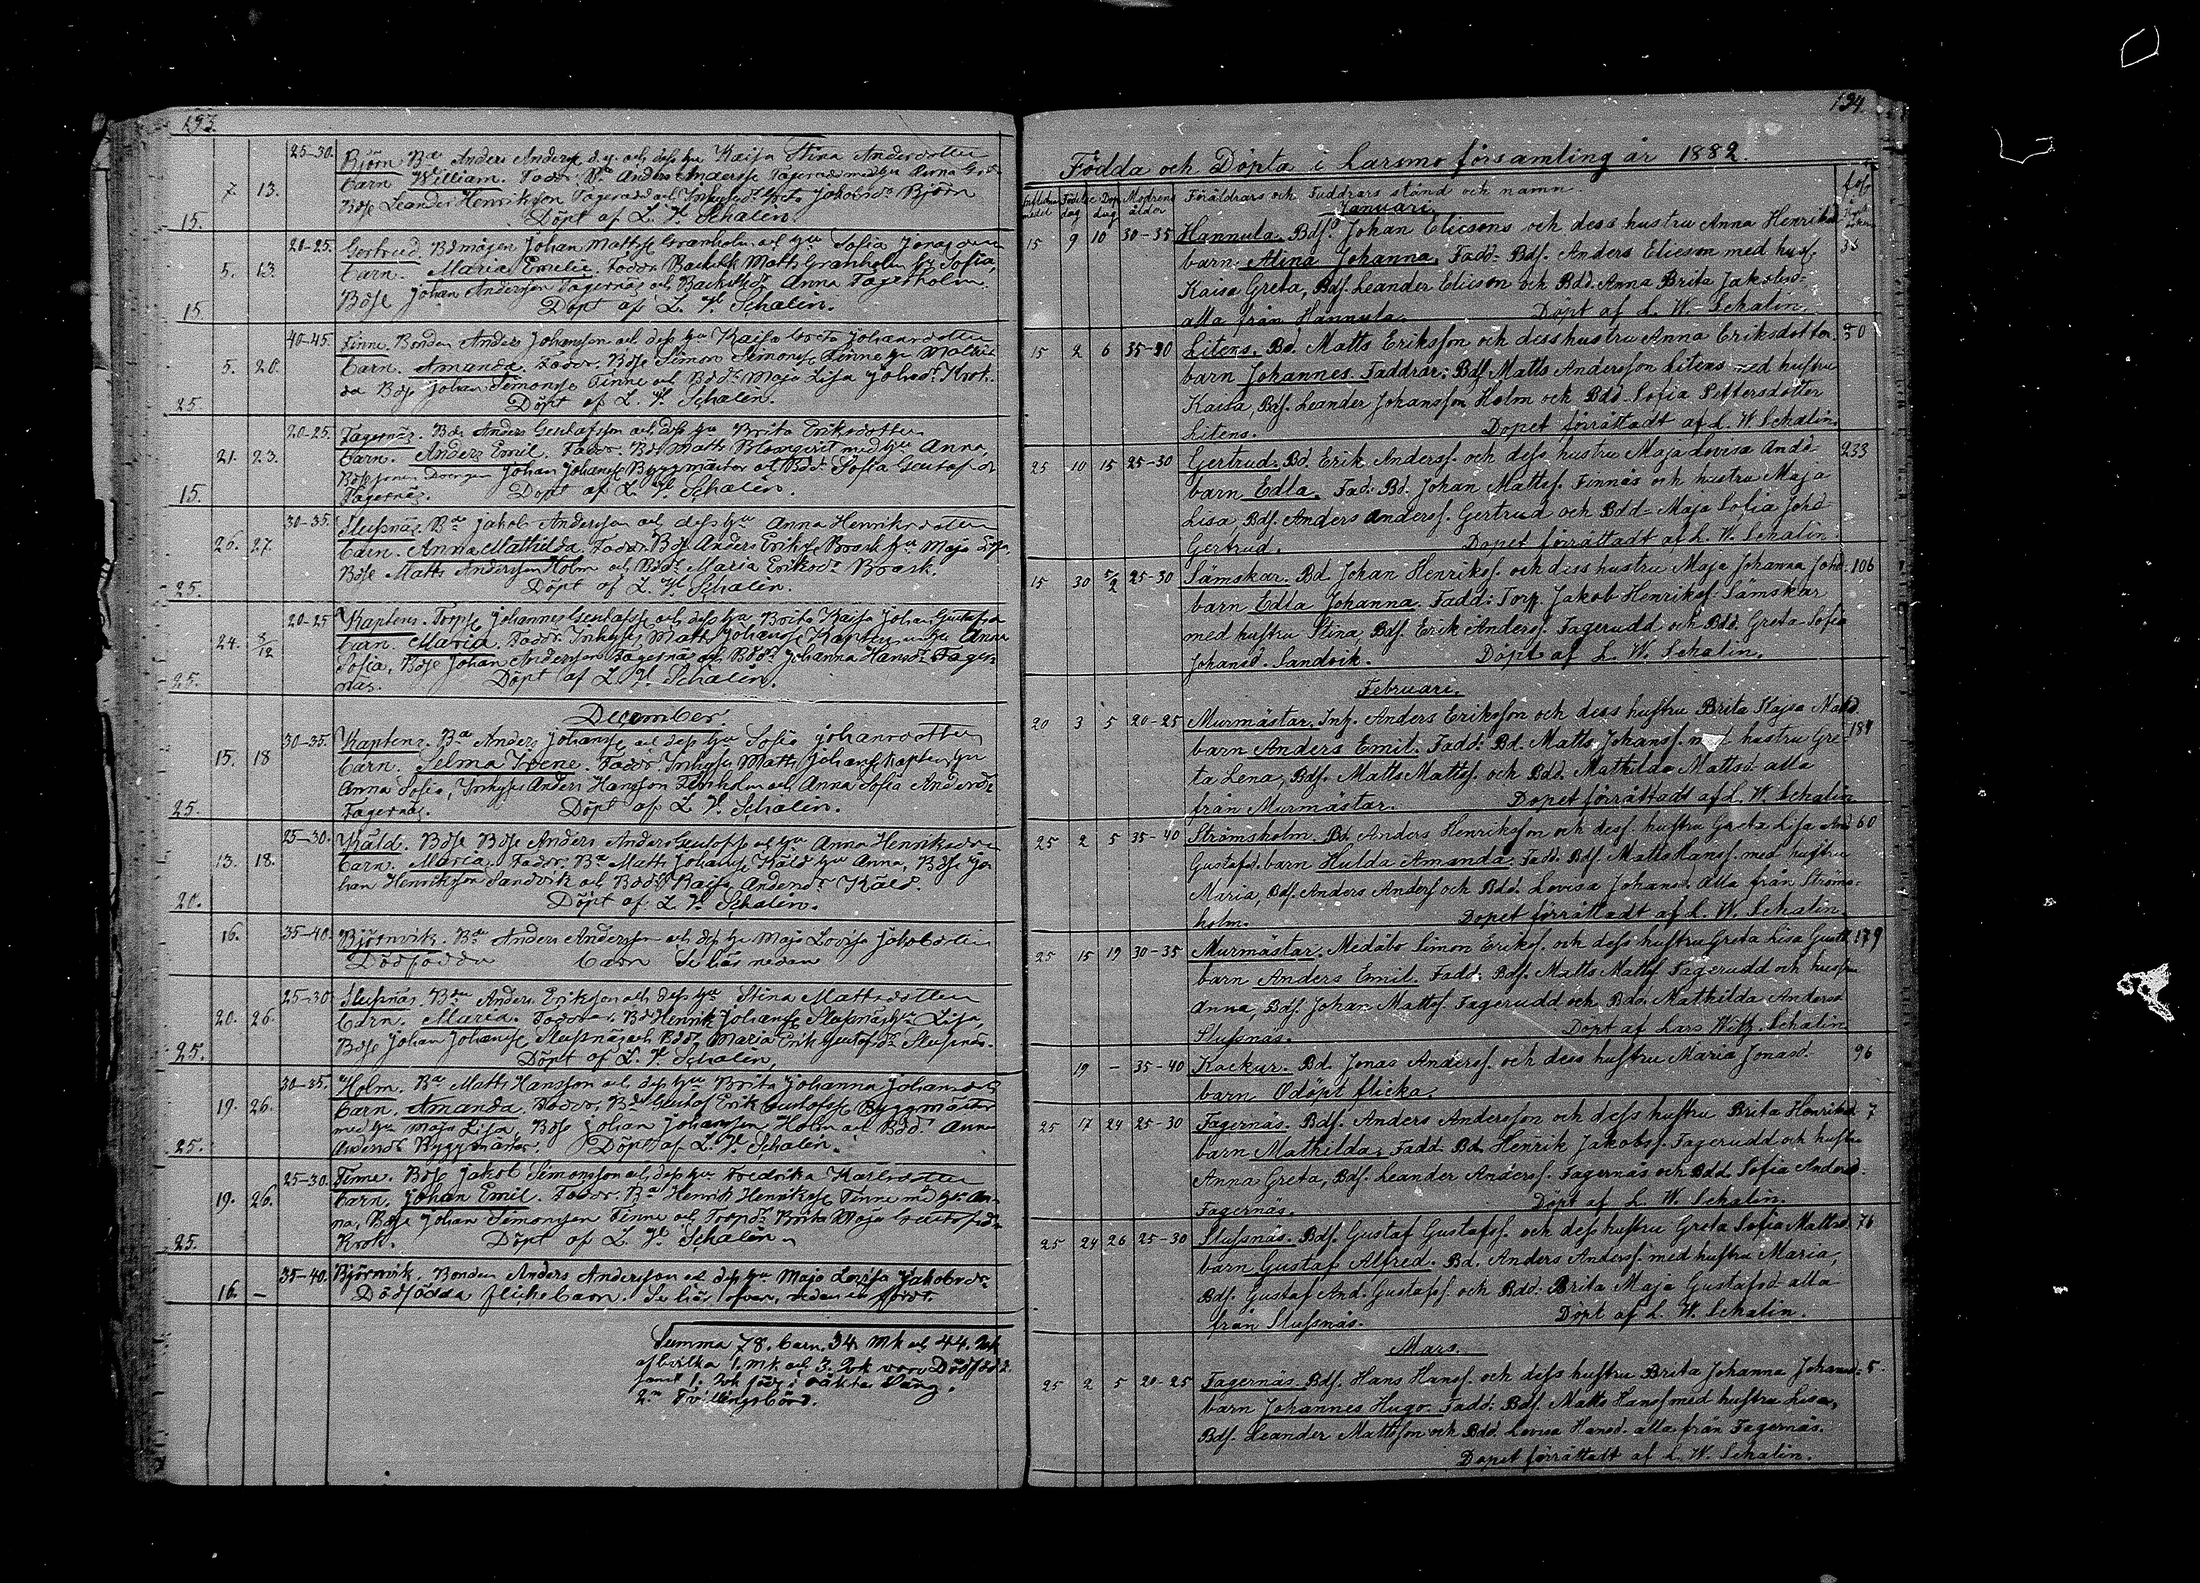 193.
25-30. Björn. Bde Anders Anders d.y. och dess hu Kaisa Stina Andersdotter
7 13. barn William. Faddr. Anders Andersse Fagerudd med hu Anna
Bdse Leander Henriksson Fagerudd och Greta Jakobsdr Björn
15. Döpt af L. W. Schalin.
20-25. Gertrud. Bdmågen Johan Matts Granholm och hu Sofia
5. 13. barn. Maria Emilie. Faddr. Matts Granholm hu Sofia,
Bdse Johan Andersson Fagernäs och Anna Fagerholm
15 Döpt af L. W. Schalin.
40-45. Finne. Bonden Anders Johansson och dess hu Kaisa Greta Johansdotter
5. 20. barn. Amanda. Faddr. Bdse Simon Simonsse Finne hu
Bdse Johan Simonsse Finne och Bddr Maja Lisa Johsdr Krok.
25. Döpt af L. W. Schalin.
20-25. Fagernäs. Bde Anders Gustafsson och dess hu Brita Eriksdotter
21. 23. barn. Anders Emil. Faddr. Bde Matts Blomqvist med hu Anna,
Johan Johansse Byggmästar och Bddr Sofia
15. Fagernäs. Döpt af L. W. Schalin.
30-35. Slussnäs. Bde Jakob Andersson och dess hu Anna Henriksdotter
26. 27. barn. Anna Mathilda. Faddr. Bde Anders Eriksse Brask hu Maja Lisa,
Bdse Matts Andersson Holm och Bddr Maria Eriksdr Brask.
25. Döpt af L. W. Schalin.
20-25 Kaptens. Torpse Johannes och dess hu Brita Kaisa
24. 8/12 barn. Maria. Faddr. Inhyses Matts Johansse Kaptens hu Anna
Sofia, Bdse Johan Andersson Fagernäs och Bddr Johanna Hansdr Fager-
25. näs. Döpt af L. W. Schalin.
December.
30-35. Kaptens. Bde Anders Johansse och dess hu Sofia Johansdotter
15. 18 barn. Selma Irene. Faddr. Inhyses Matts Johansse Kaptens hu
Anna Sofia, Inhyses Anders Hansson och Anna Sofia Andersdr
25. Fagernäs. Döpt af L. W. Schalin.
25-30. Käld. Bdse Anders Anders och hu Anna Henriksdotter
13. 18. barn. Maria. Faddr. Bde Matts Johansse Käld hu Anna, Bdse Jo-
han Henriksson Sandvik och Bddr Kaisa Andersdr Käld.
20. Döpt af L. W. Schalin.
16. 35-40. Björnvik. Bde Anders Andersson och dess hu Maja Lovisa Jakobsdotter
Dödfödda barn Se här nedan
25-30 Slussnäs. Bde Anders Eriksson och dess hu Stina Mattsdotter
20. 26. barn. Maria. Faddrar. Bde Henrik Johansse Slussnäs hu Lisa,
Bdse Johan Johansse Slussnäs och Bddr Maria Erik Gustafsdr Slussnäs.
25. Döpt af L. W. Schalin,
30-35. Holm. Bde Matts Hansson och dess hu Brita Johanna Johansdr
19. 26. barn. Amanda. Faddr. Bde Gustaf Erik Gustafsse Byggmästar
med hu Maja Lisa, Bdse Johan Johansson Holm och Bddr Anna
25. Andersdr Byggmästar. Döpt af L. W. Schalin.
25-30. Finne. Bdse Jakob Simonsson och dess hu Fredrika Karlsdotter
19. 26. barn. Johan Emil. Faddr. Bde Henrik Henriksse Finne med hu An-
na, Bdse Johan Simonsson Finne och Torpdr Brita Maja Gustafsdr
25. Krok. Döpt af L. W. Schalin.
35-40. Björnvik. Bonden Anders Andersson och dess hu Maja Lovisa Jakobsdr.
16. - Dödfödda flickebarn. Se här ofvan,
Summa 78. barn. 34 mk och 44. qvk
af hvilka 1. mk och 3. qvk voro Dödfödd.
samt 1. qvk född i oäkta säng.
2ne Tvillingsbörd.
194.
Födda och Döpta i Larsmo församling år 1882.
Födelse dag Döp dag Modrens ålder Föräldrars och Faddrars stånd och namn.
Januari.
15 9 10 30-35 Hannula. Bdf. Johan Elicsons och dess hustru Anna Henriksd
barn: Alina Johanna. Fadd: Bdf. Anders Elicson med husf. 33
Kaisa Greta, Bdf. Leander Elicson och Bdd. Anna Brita Jakobsd-
alla från Hannula. Döpt af L. W. Schalin.
15 2 6 35-40 Litens. Bd. Matts Eriksson och dess hustru Anna Eriksdotter
barn Johannes. Faddrar: Bdf Matts Andersson Litens med hustru
Kaisa, Bdf. Leander Johansson Holm och Bdd. Sofia Pettersdotter
Litens. Dopet förrättadt af L. W. Schalin.
25 10 15 25-30 Gertrud. Bd. Erik Anderss. och dess hustru Maja Lovisa Andd 233
barn Edla. Fad: Bd. Johan Mattss. Finnäs och hustru Maja
Lisa, Bdf. Anders Anderss. Gertrud och Bdd Maja Sofia Johd
Gertrud. Dopet förrättadt af L. W. Schalin.
15 30 5/2 25-30 Sämskar. Bd Johan Henrikss. och dess hustru Maja Johanna Johd. 106
barn Edla Johanna. Fadd: Torp. Jakob Henrikss. Sämskar
med hustru Stina, Bdf. Erik Anderss. Fagerudd och Bdd. Greta Sofia
Johansd. Sandvik. Döpt af L. W. Schalin.
Februari.
20 3 5 20-25 Murmästar. Inh. Anders Eriksson och dess hustru Brita Kajsa Mattsd.
barn Anders Emil. Fadd: Bd. Matts Johanss. med hustru Gre- 184
ta Lena, Bdf. Matts Mattss. och Bdd. Mathilda Mattsd. alla
från Murmästar. Dopet förrättadt af L. W. Schalin
25 2 5 35-40 Strömsholm. Bd Anders Henriksson och dess. hustru Greta Lisa And 60
Gustafsd. barn Hulda Amanda. Fadd: Bdf. Matts Hanss. med hustru
Maria, Bdf. Anders Anderss och Bdd. Lovisa Johansd. alla från Ströms-
holm. Dopet förrättadt af L. W. Schalin.
25 15 19 30-35 Murmästar. Medåbo Simon Erikss. och dess hustru Greta Lisa Gustd. 179
barn Anders Emil. Fadd: Bdf. Matts Mattss. Fagerudd och husfru
Anna, Bdf. Johan Mattss. Fagerudd och Bdd. Mathilda Andersd
Slussnäs. Döpt af Lars Wilh. Schalin
19 - 35-40 Kackur. Bd. Jonas Anderss. och dess hustru Maria Jonasd. 96
barn Odöpt flicka.
25 17 24 25-30 Fagernäs. Bdf. Anders Andersson och dess hustru Brita Henriksd. 7
barn Mathilda. Fadd. Bd. Henrik Jakobss. Fagerudd och hustru
Anna Greta, Bdf. Leander Anderss. Fagernäs och Bdd. Sofia Andersd.
Fagernäs. Döpt af L. W. Schalin.
25 24 26 25-30 Slussnäs. Bdf. Gustaf Gustafss. och dess hustru Greta Sofia Mattsd. 76
barn Gustaf Alfred. Bd. Anders Anderss. med hustru Maria,
Bdf. Gustaf And. Gustafss. och Bdd. Brita Maja Gustafsd alla
från Slussnäs. Döpt af L. W. Schalin.
Mars.
25 2 5 20-25 Fagernäs. Bdf. Hans Hanss. och dess hustru Brita Johanna Johansd. 5.
barn Johannes Hugo. Fadd: Bdf. Matts Hanss med hustru Lisa,
Bdf. Leander Mattsson och Bdd. Lovisa Hansd. alla från Fagernäs.
Dopet förrättadt af L. W. Schalin.